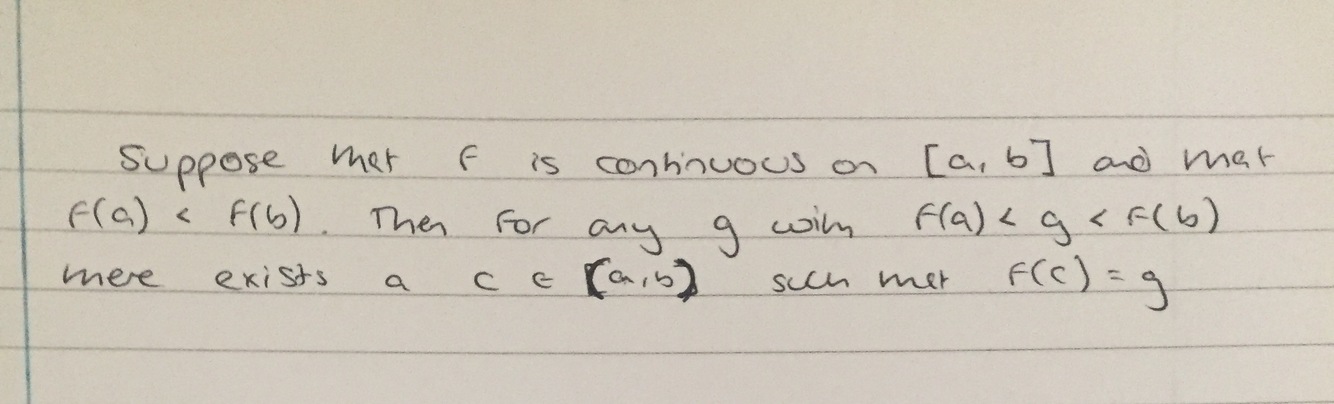 Suppose that f is continuous on [a, b] and that
f(a) < f(b). Then for any g with f(a) < g < f(b)
there exists a c ∈ (a, b) such that f(c) = g